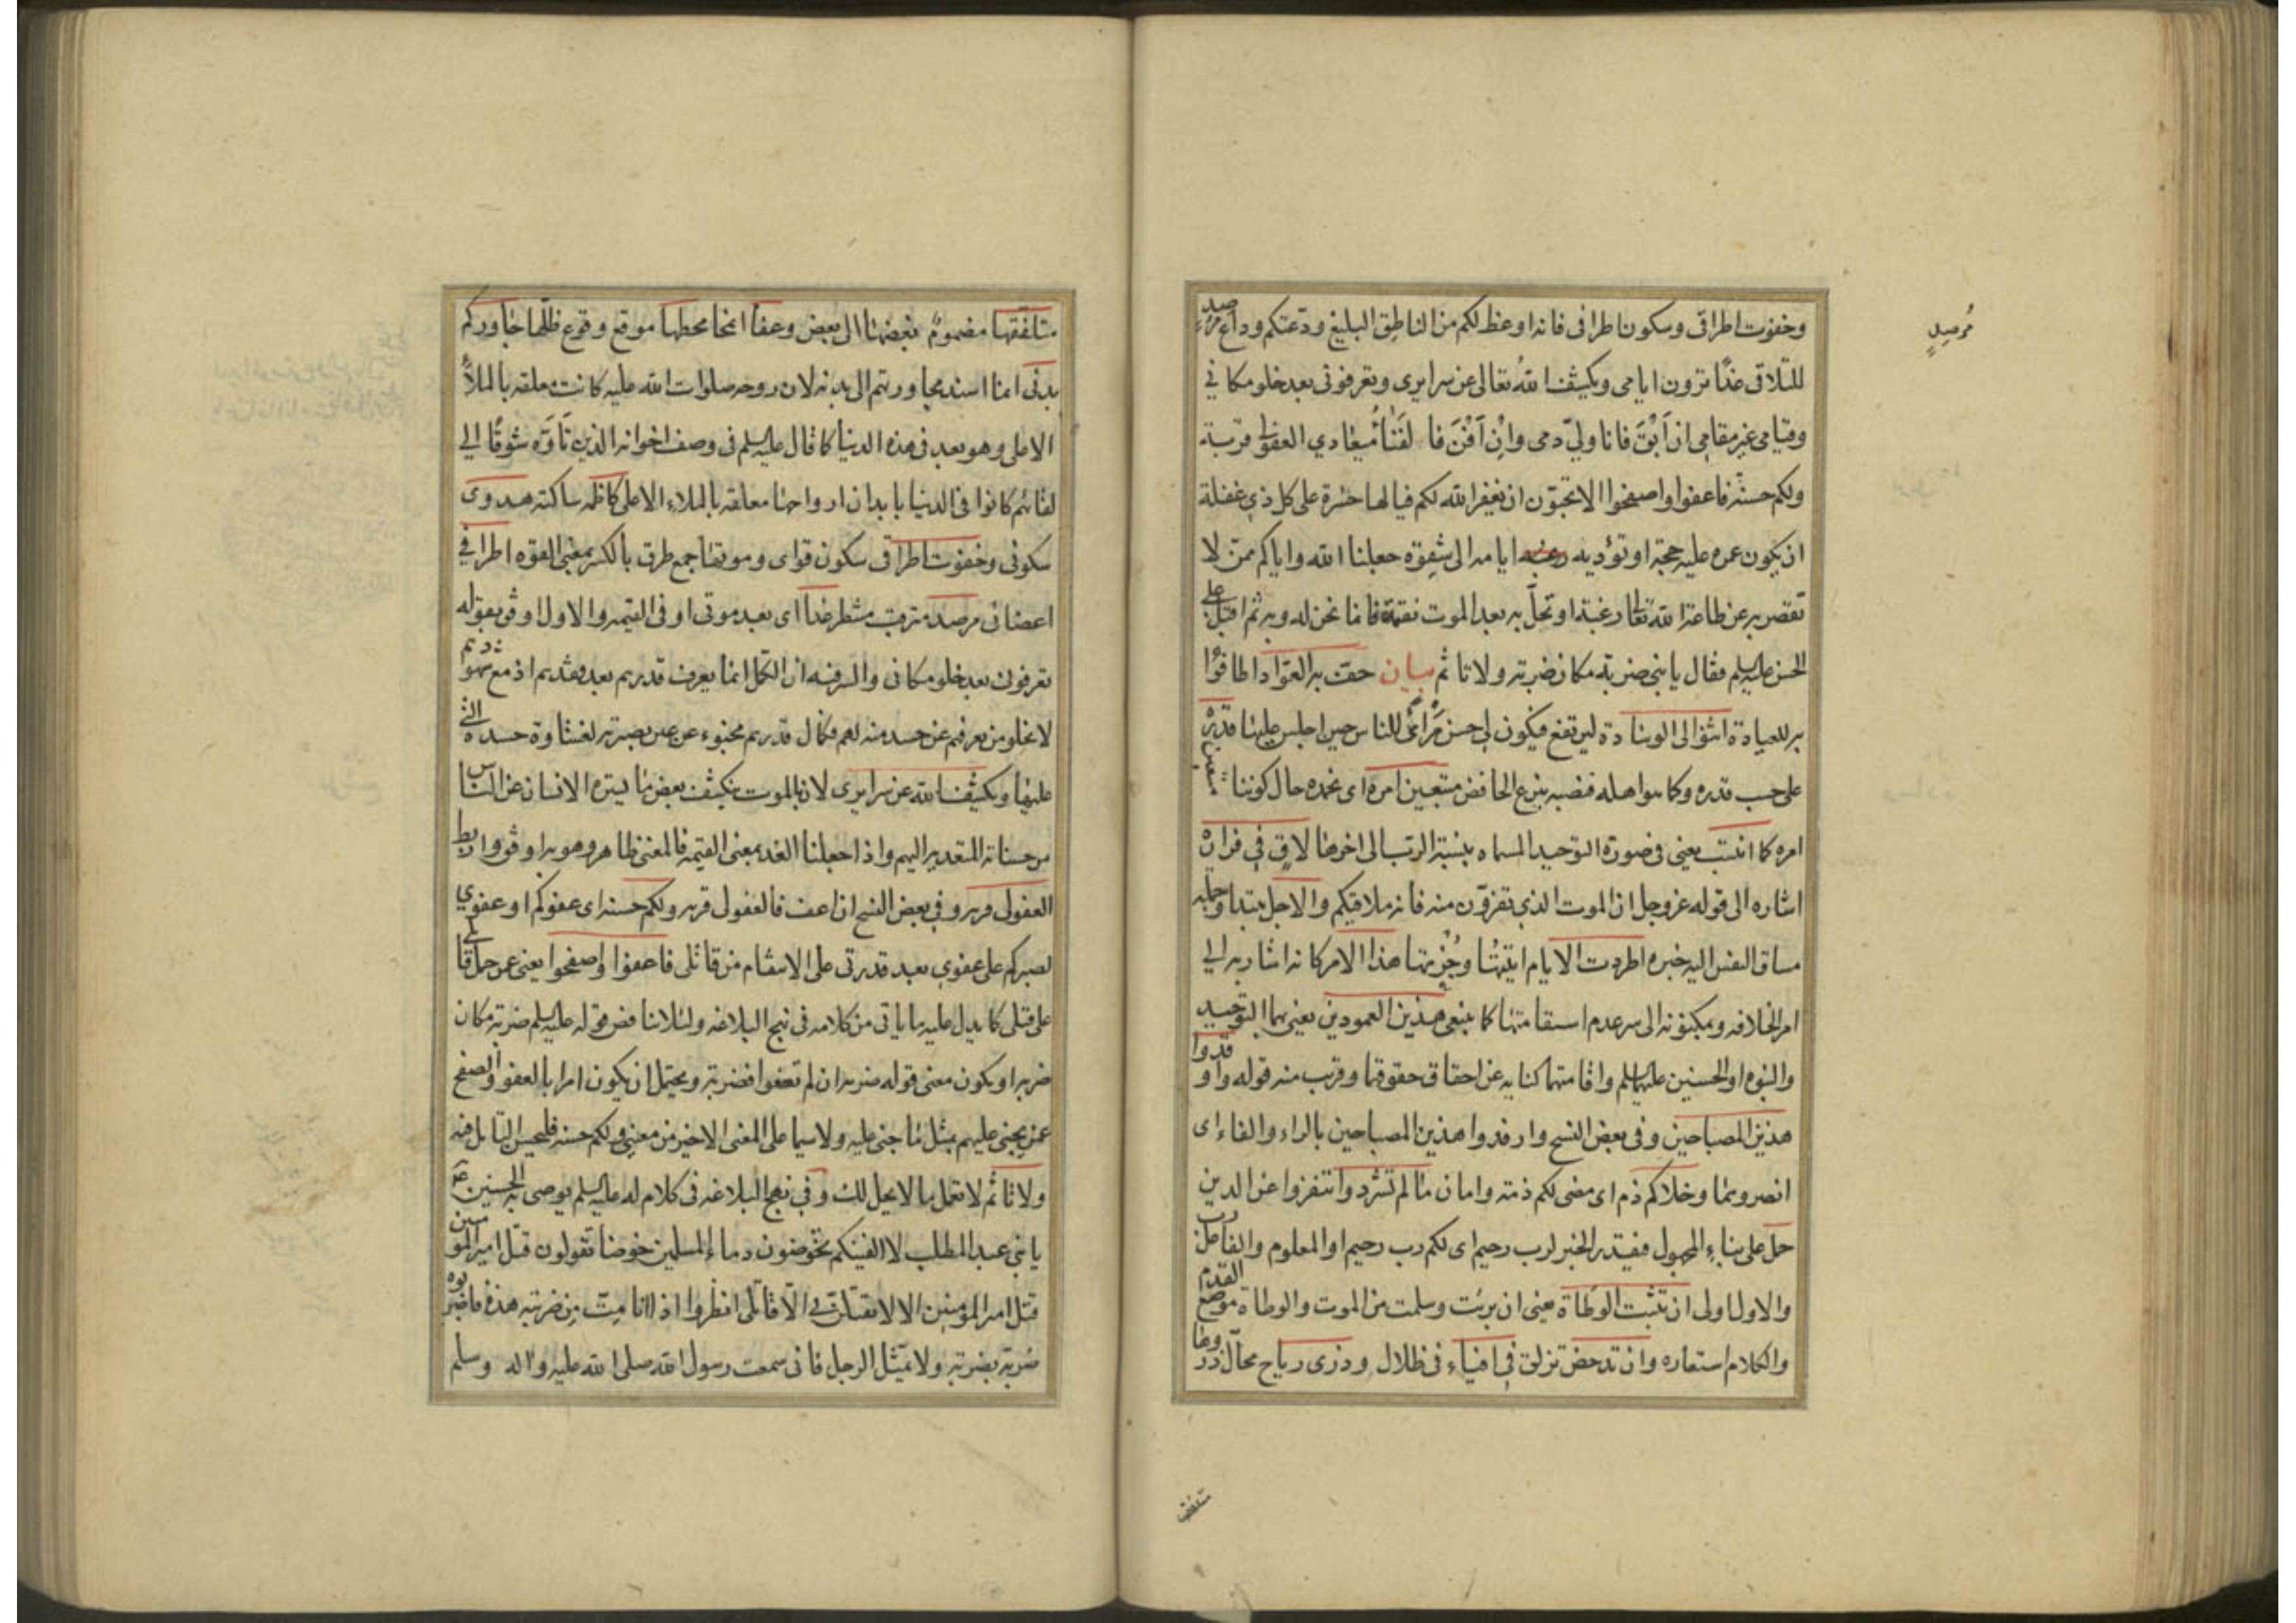 وخفوت اطراقی وسکون اطرافی فانه اوعظ لکم من الناطق البلیغ ودّعتکم وداع مرصد
مُرصِدٍ
للتلاقی غدًا ترون ایامی ویکشف اللهُ تعالی عن سرایری وتعرفونی بعد خلو مکانی
وقیامی غیر مقامی ان اَبْقَ فانا ولیّ دمی واِنْ اَفْنَ فا لفَنَاءُ میعادی العفو لی قربة
ولکم حسنة فاعفوا واصفحوا الا تحبّون ان یغفر الله لکم فیالها حسْرة علی کل ذی غفلة
ان یکون عمره علیه حجة او تؤدیه ایامه الی شِقوة جعلنا الله وایاکم ممّن لا
تقصر به عن طاعة الله تعالی رغبة او تحلّ به بعد الموت نقمة فانما نحن له وبه ثم اقبل علی
الحسن علیه السلم فقال یا بنی ضربة مکان ضربة ولا تاثم بیان حفّت به العوّاد اطافوا
به للعیادة اثنوا لی الوسادة لیرتفع فیکون لی احسن مرأی للناس حین اجلس علیها قدرَهْ
علی حسب قدره وکما هو اهله فنصبه بنزع الخافض متبعین امره ای نحمده حال کوننا متبعین
امره کما انتسب یعنی فی صورة التوحید المسماه بنسبة الرب الی اخرها لاقٍ فی فراره
اشاره الی قوله عز وجل ان الموت الذی تفرّون منه فانه ملاقیکم والاجل مبتدأ وجملة
مساق النفس الیه خبره اطردت الایام اتبعتها وجُزیتها هذا الامر کانه اشار به الی
امر الخلافه وبمکنونه الی سر عدم استقامتها کما ینبغی هذین العمودین یعنی بهما التوحید
والنبوه او الحسنین علیهما السلم واقامتهما کنایه عن احقاق حقوقهما وقرب منه قوله واوقدوا
هذین المصباحین وفی بعض النسخ وارفدوا هذین المصباحین بالراء والفاء ای
انصروهما وخلاکم ذم ای مضی لکم ذمة وامان ما لم تشردوا تنفروا عن الدین
حمل علی بناء المجهول فیقدر الخبر لرب رحیم ای لکم رب رحیم او المعلوم والفاعل رب
والاول اولی ان تثبت الوطاة یعنی ان برئت وسلمت من الموت والوطاة موضع القدم
والکلام استعاره وان تدحض تزلق فی افیاء فی ظلال وذری ریاح محالّ ذروها
متلفقها
متلفقها مضموم بعضها الی بعض وعفا امحا محطها موقع وقوع ظلّها جاورکم
بدنی انما اسند مجاورتهم الی بدنه لان روحه صلوات الله علیه کانت معلقه بالملأ
الاعلی وهو بعد فی هذه الدنیا کما قال علیه السلم فی وصف اخوانه الذین تاوّه شوقًا الی
لقائهم کانوا فی الدنیا بابدان ارواحها معلقه بالملاء الاعلی کاظمه ساکنه هدوی
سکونی وخفوت اطراقی سکون قوای وموتها جمع طرق بالکسر بمعنی القوه اطرافی
اعضائی مرصد مترقب منتظر غدا ای بعد موتی او فی القیمه والاول اوفق بقوله
تعرفونی بعد خلو مکانی والسر فیه ان الکمل انما یعرف قدرهم بعد فقدهم اذ مع شهودهم
لا یخلو من یعرفهم عن حسد منه لهم فکمال قدرهم مخبوء عن عین بصیرته لغشاوة حسده التی
علیها ویکشف الله عن سرایری لان بالموت ینکشف بعض ما یستره الانسان عن الناس
من حسناته المتعدیه الیهم واذا جعلنا الغد بمعنی القیمه فالمعنی ظاهر وهو به اوفق واربط
العفو لی قربه وفی بعض النسخ ان اعف فالعفو لی قربه ولکم حسنه ای عفوکم او عفوی
لصبرکم علی عفوی بعد قدرتی علی الانتقام من قاتلی فاعفوا واصفحوا یعنی عن حمل قاتلی
علی قتلی کما یدل علیه ما یاتی من کلامه فی نهج البلاغه ولئلا یناقض قوله علیه السلم ضربة مکان
ضربه او یکون معنی قوله ضربه ان لم تعفوا فضربة ویحتمل ان یکون امرا بالعفو والصفح
عمن یجنی علیهم بمثل ما جنی علیه ولا سیما علی المعنی الاخیر من معنیی ولکم حسنه فلیحسن التامل فیه
ولا تاثم لا تعمل ما لا یحل لک وفی نهج البلاغه فی کلام له علیه السلم یوصی به الحسنین ع
یا بنی عبد المطلب لا الفینکم تخوضون دماء المسلمین خوضا تقولون قتل امیر المومنین
قتل امیر المومنین الا لا تقتلن بی الّا قاتلی انظروا اذا انا مِتّ من ضربته هذه فاضربوه
ضربة بضربة ولا یمثّل الرجل فانی سمعت رسول الله صلی الله علیه واله وسلم